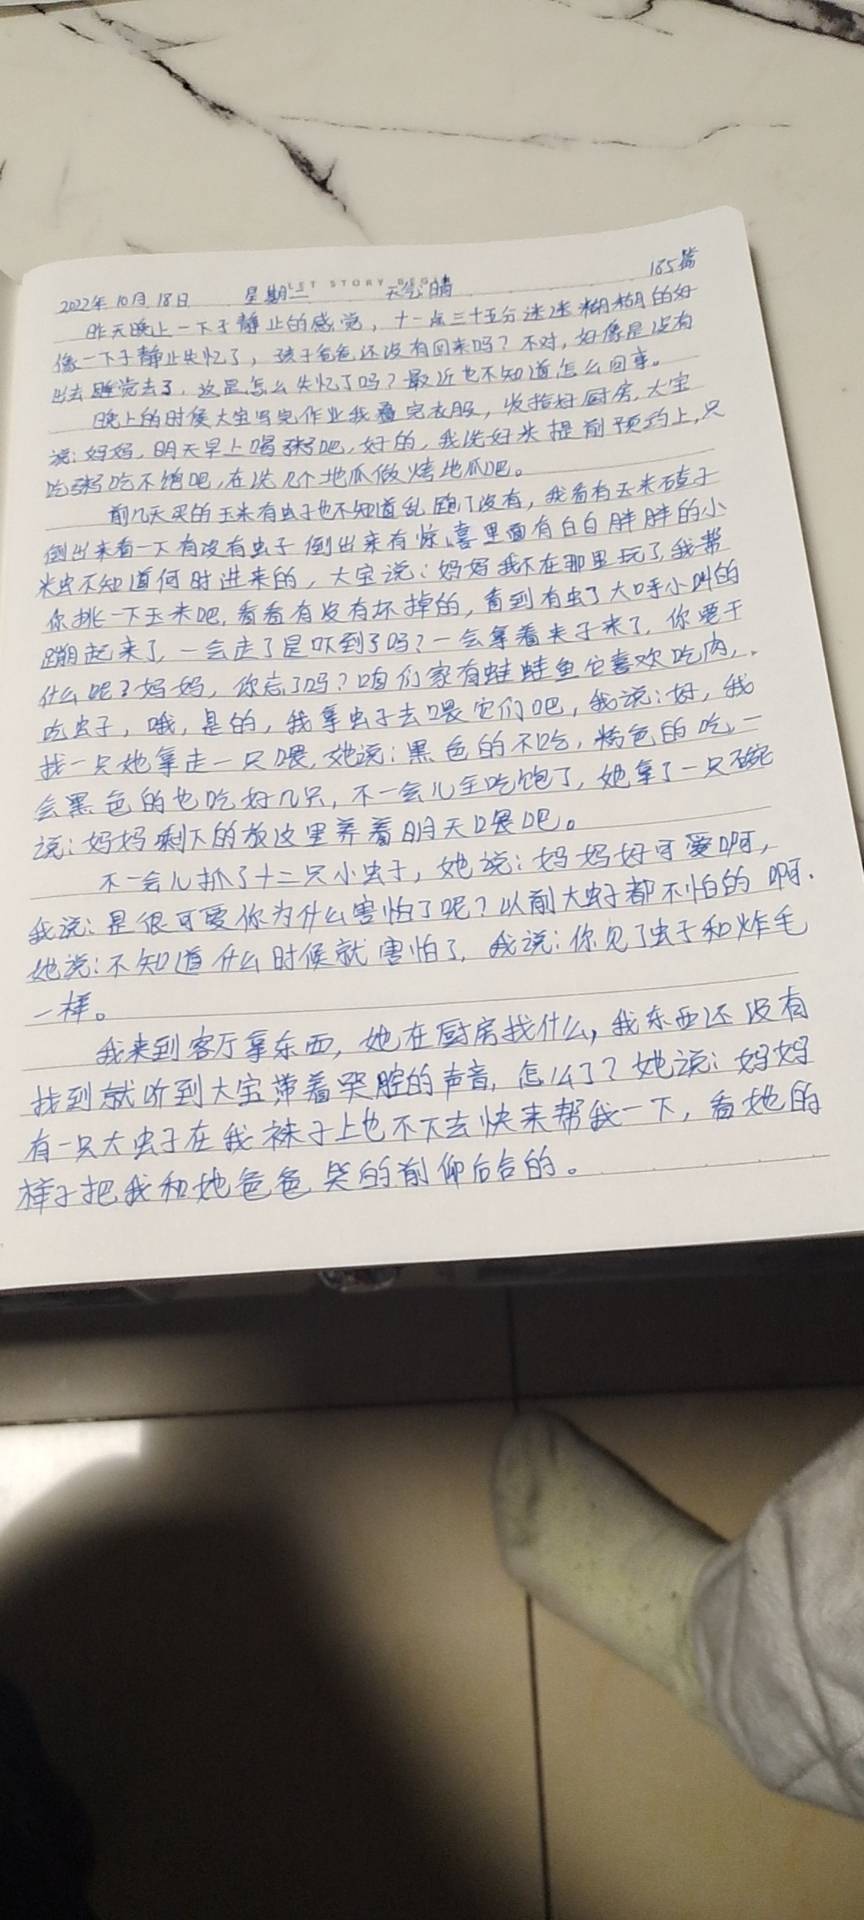 2022年10月18日 星期二 天气晴 185篇
LET STORY BEGIN
昨天晚上一下子静止的感觉，十一点三十五分迷迷糊糊的好
像一下子静止失忆了，孩子爸爸还没有回来吗？不对，好像是没有
出去睡觉去了，这是怎么失忆了吗？最近也不知道怎么回事。
晚上的时候大宝写完作业我叠完衣服，收拾好厨房，大宝
说：妈妈，明天早上喝粥吧，好的，我洗好米提前预约上，只
吃粥吃不饱吧，在洗几个地瓜做烤地瓜吧。
前几天买的玉米有虫子也不知道乱跑了没有，我看有玉米碴子
倒出来看一下有没有虫子倒出来有惊喜里面有白白胖胖的小
米虫不知道何时进来的，大宝说：妈妈我不在那里玩了，我帮
你挑一下玉米吧，看看有没有坏掉的，看到有虫了大呼小叫的
蹦起来了，一会走了是吓到了吗？一会拿着夹子来了，你要干
什么呢？妈妈，你忘了吗？咱们家有蛙蛙鱼它喜欢吃肉，
吃虫子，哦，是的，我拿虫子去喂它们吧，我说：好，我
找一只她拿走一只喂，她说：黑色的不吃，粉色的吃，一
会黑色的也吃好几只，不一会儿全吃饱了，她拿了一只碗
说：妈妈剩下的放这里养着明天喂吧。
不一会儿抓了十二只小虫子，她说：妈妈好可爱啊，
我说：是很可爱你为什么害怕了呢？以前大虫子都不怕的啊.
她说：不知道什么时候就害怕了，我说：你见了虫子和炸毛
一样。
我来到客厅拿东西，她在厨房找什么，我东西还没有
找到就听到大宝带着哭腔的声音，怎么了？她说：妈妈
有一只大虫子在我袜子上也不下去快来帮我一下，看她的
样子把我和她爸爸笑的前仰后合的。